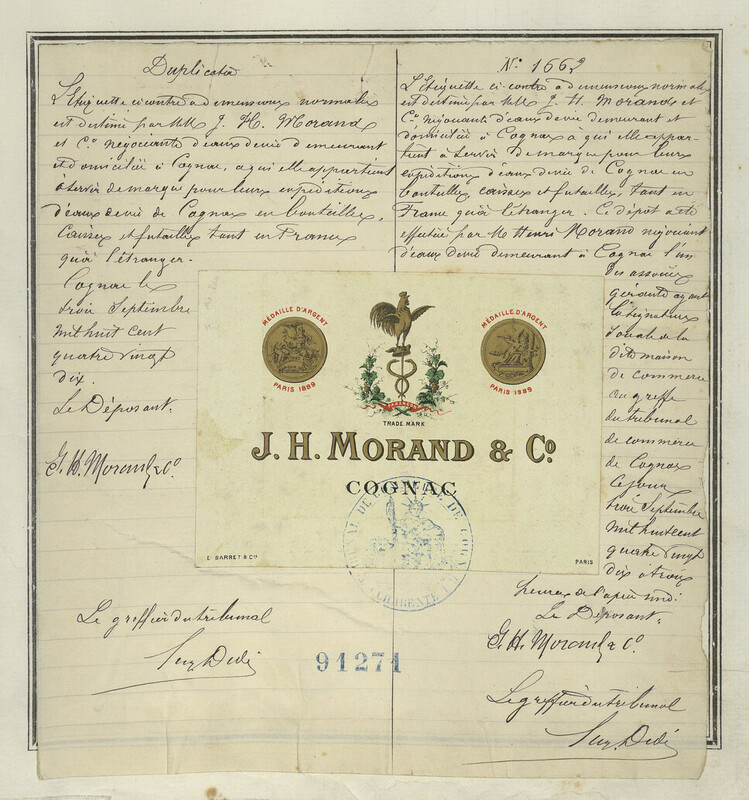 Duplicata
L'Etiquette ci contre a dimensions normales
est destinée par MM J. H. Morand
et Cº negociants d'eaux de vie demeurant
et domiciliés à Cognac, a qui elle appartient
à servir de marque pour leurs expeditions
d'eaux de vie de Cognac en bouteilles,
caisses et futailles tant en France
qu'à l'étranger.
Cognac le
trois Septembre
mil huit cent
quatre vingt
dix.
Le Déposant.
J. H. Morand & Cº
Le greffier du tribunal
Nº 1663
L'Etiquette ci contre a dimensions normales
est destinée par MM J. H. Morand et
Cº négociants d'eaux de vie demeurant et
domiciliés à Cognac à qui elle appar-
tient à servir de marque pour leurs
expéditions d'eaux de vie de Cognac en
bouteilles, caisses et futailles, tant en
France qu'à l'étranger. Ce dépôt a été
effectué par M Henri Morand négociant
d'eaux de vie demeurant à Cognac l'un
des associés
gérants ayant
la signature
sociale de la
dite maison
de commerce
au greffe
du tribunal
de commerce
de Cognac
ce jour
trois Septembre
mil huit cent
quatre vingt
dix à trois
heures de l'après midi.
Le Déposant.
J. H. Morand & Cº
Le greffier du tribunal
MÉDAILLE D'ARGENT
PARIS 1889
MÉDAILLE D'ARGENT
PARIS 1889
TRADE MARK
J. H. MORAND & Cº
COGNAC
E. BARRET & Cie
PARIS
TRIBUNAL DE COMMERCE DE COGNAC
CHARENTE
91271